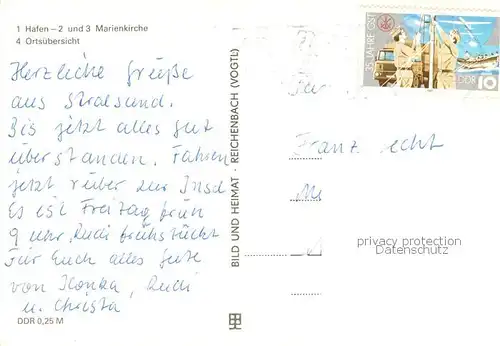 1 Hafen – 2 und 3 Marienkirche
4 Ortsübersicht
Herzliche Grüße
aus Stralsund.
Bis jetzt alles gut
überstanden. Fahren
jetzt rüber zur Insel
Es ist Freitag früh
9 Uhr, Rudi frühstückt
Für Euch alles Gute
von Ilonka, Rudi
u. Christa
DDR 0,25 M
BILD UND HEIMAT · REICHENBACH (VOGTL)
35 JAHRE GST
DDR 10
Fam.
Franz echt
privacy protection
Datenschutz